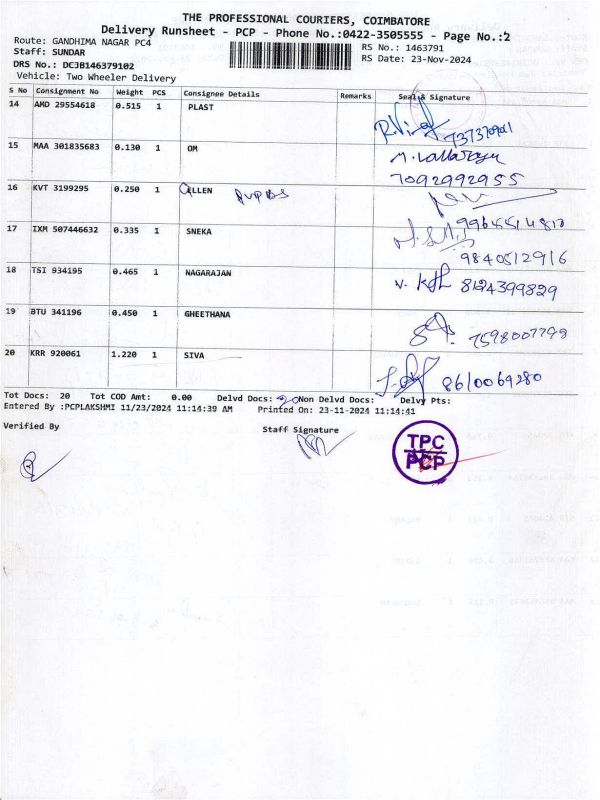 THE PROFESSIONAL COURIERS, COIMBATORE
Delivery Runsheet - PCP - Phone No.:0422-3505555 - Page No.:2
Route: GANDHIMA NAGAR PC4 RS No.: 1463791
Staff: SUNDAR RS Date: 23-Nov-2024
DRS No.: DCJB146379102
Vehicle: Two Wheeler Delivery
S No Consignment No Weight PCS Consignee Details Remarks Seal & Signature
14 AMD 29554618 0.515 1 PLAST
15 MAA 301835683 0.130 1 OM
7092992955
16 KVT 3199295 0.250 1 ALLEN
17 IXM 507446632 0.335 1 SNEKA
9840512916
18 TSI 934195 0.465 1 NAGARAJAN 8124399829
19 BTU 341196 0.450 1 GHEETHANA
7598007798
20 KRR 920061 1.220 1 SIVA
8610069280
Tot Docs: 20 Tot COD Amt: 0.00 Delvd Docs: 20 Non Delvd Docs: Delvy Pts:
Entered By :PCPLAKSHMI 11/23/2024 11:14:39 AM Printed On: 23-11-2024 11:14:41
Verified By Staff Signature
TPC
PCP